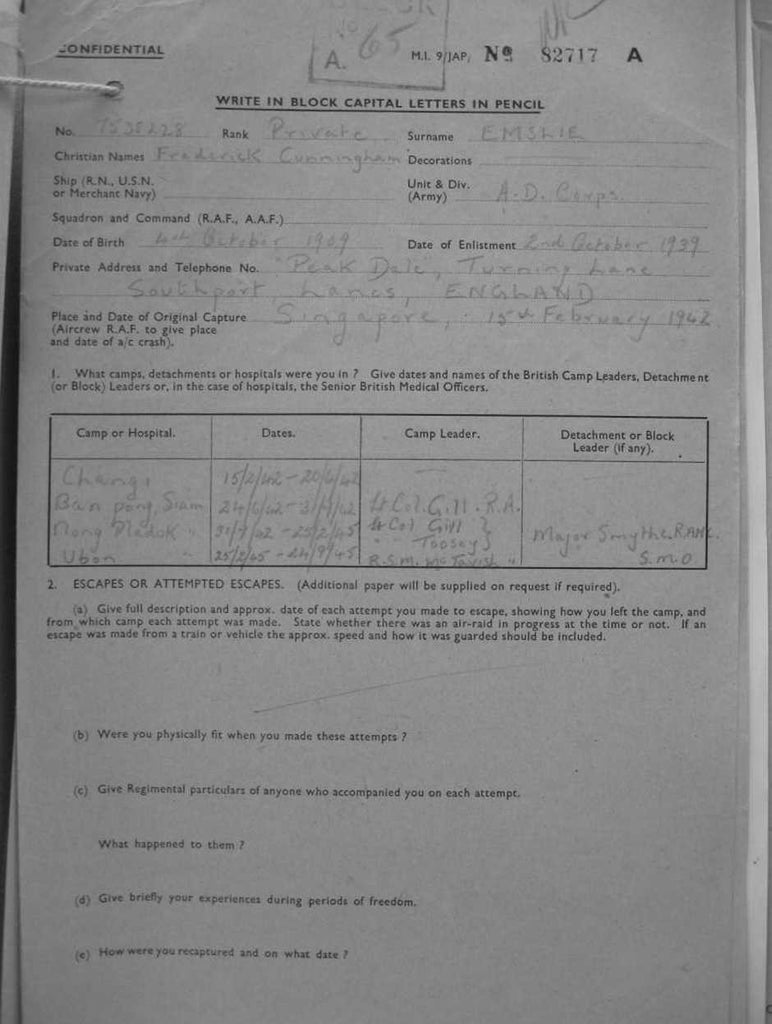 CONFIDENTIAL
A. 65 M.I. 9/JAP/ No 82717 A
WRITE IN BLOCK CAPITAL LETTERS IN PENCIL
No. 7535228 Rank Private Surname EMSLIE
Christian Names Frederick Cunningham Decorations
Ship (R.N., U.S.N. or Merchant Navy) Unit & Div. (Army) A.D. Corps.
Squadron and Command (R.A.F., A.A.F.)
Date of Birth 4th October 1909 Date of Enlistment 2nd October 1939
Private Address and Telephone No. "Peak Dale, Turning Lane
Southport, Lancs, ENGLAND
Place and Date of Original Capture Singapore, 15th February 1942
(Aircrew R.A.F. to give place
and date of a/c crash).
1. What camps, detachments or hospitals were you in ? Give dates and names of the British Camp Leaders, Detachment
(or Block) Leaders or, in the case of hospitals, the Senior British Medical Officers.
Camp or Hospital. Dates. Camp Leader. Detachment or Block Leader (if any).
Changi 15/2/42 - 20/6/42
Ban pong, Siam 24/6/42 - Lt Col. Gill. R.A.
Nong Pladok " 31/7/42 - 25/2/45 Lt Col Gill }
" Toosey } Major Smythe. RAMC.
Ubon " 25/2/45 - 24/9/45 R.S.M. McTavish " S.M.O
2. ESCAPES OR ATTEMPTED ESCAPES. (Additional paper will be supplied on request if required).
(a) Give full description and approx. date of each attempt you made to escape, showing how you left the camp, and
from which camp each attempt was made. State whether there was an air-raid in progress at the time or not. If an
escape was made from a train or vehicle the approx. speed and how it was guarded should be included.
(b) Were you physically fit when you made these attempts ?
(c) Give Regimental particulars of anyone who accompanied you on each attempt.
What happened to them ?
(d) Give briefly your experiences during periods of freedom.
(e) How were you recaptured and on what date ?